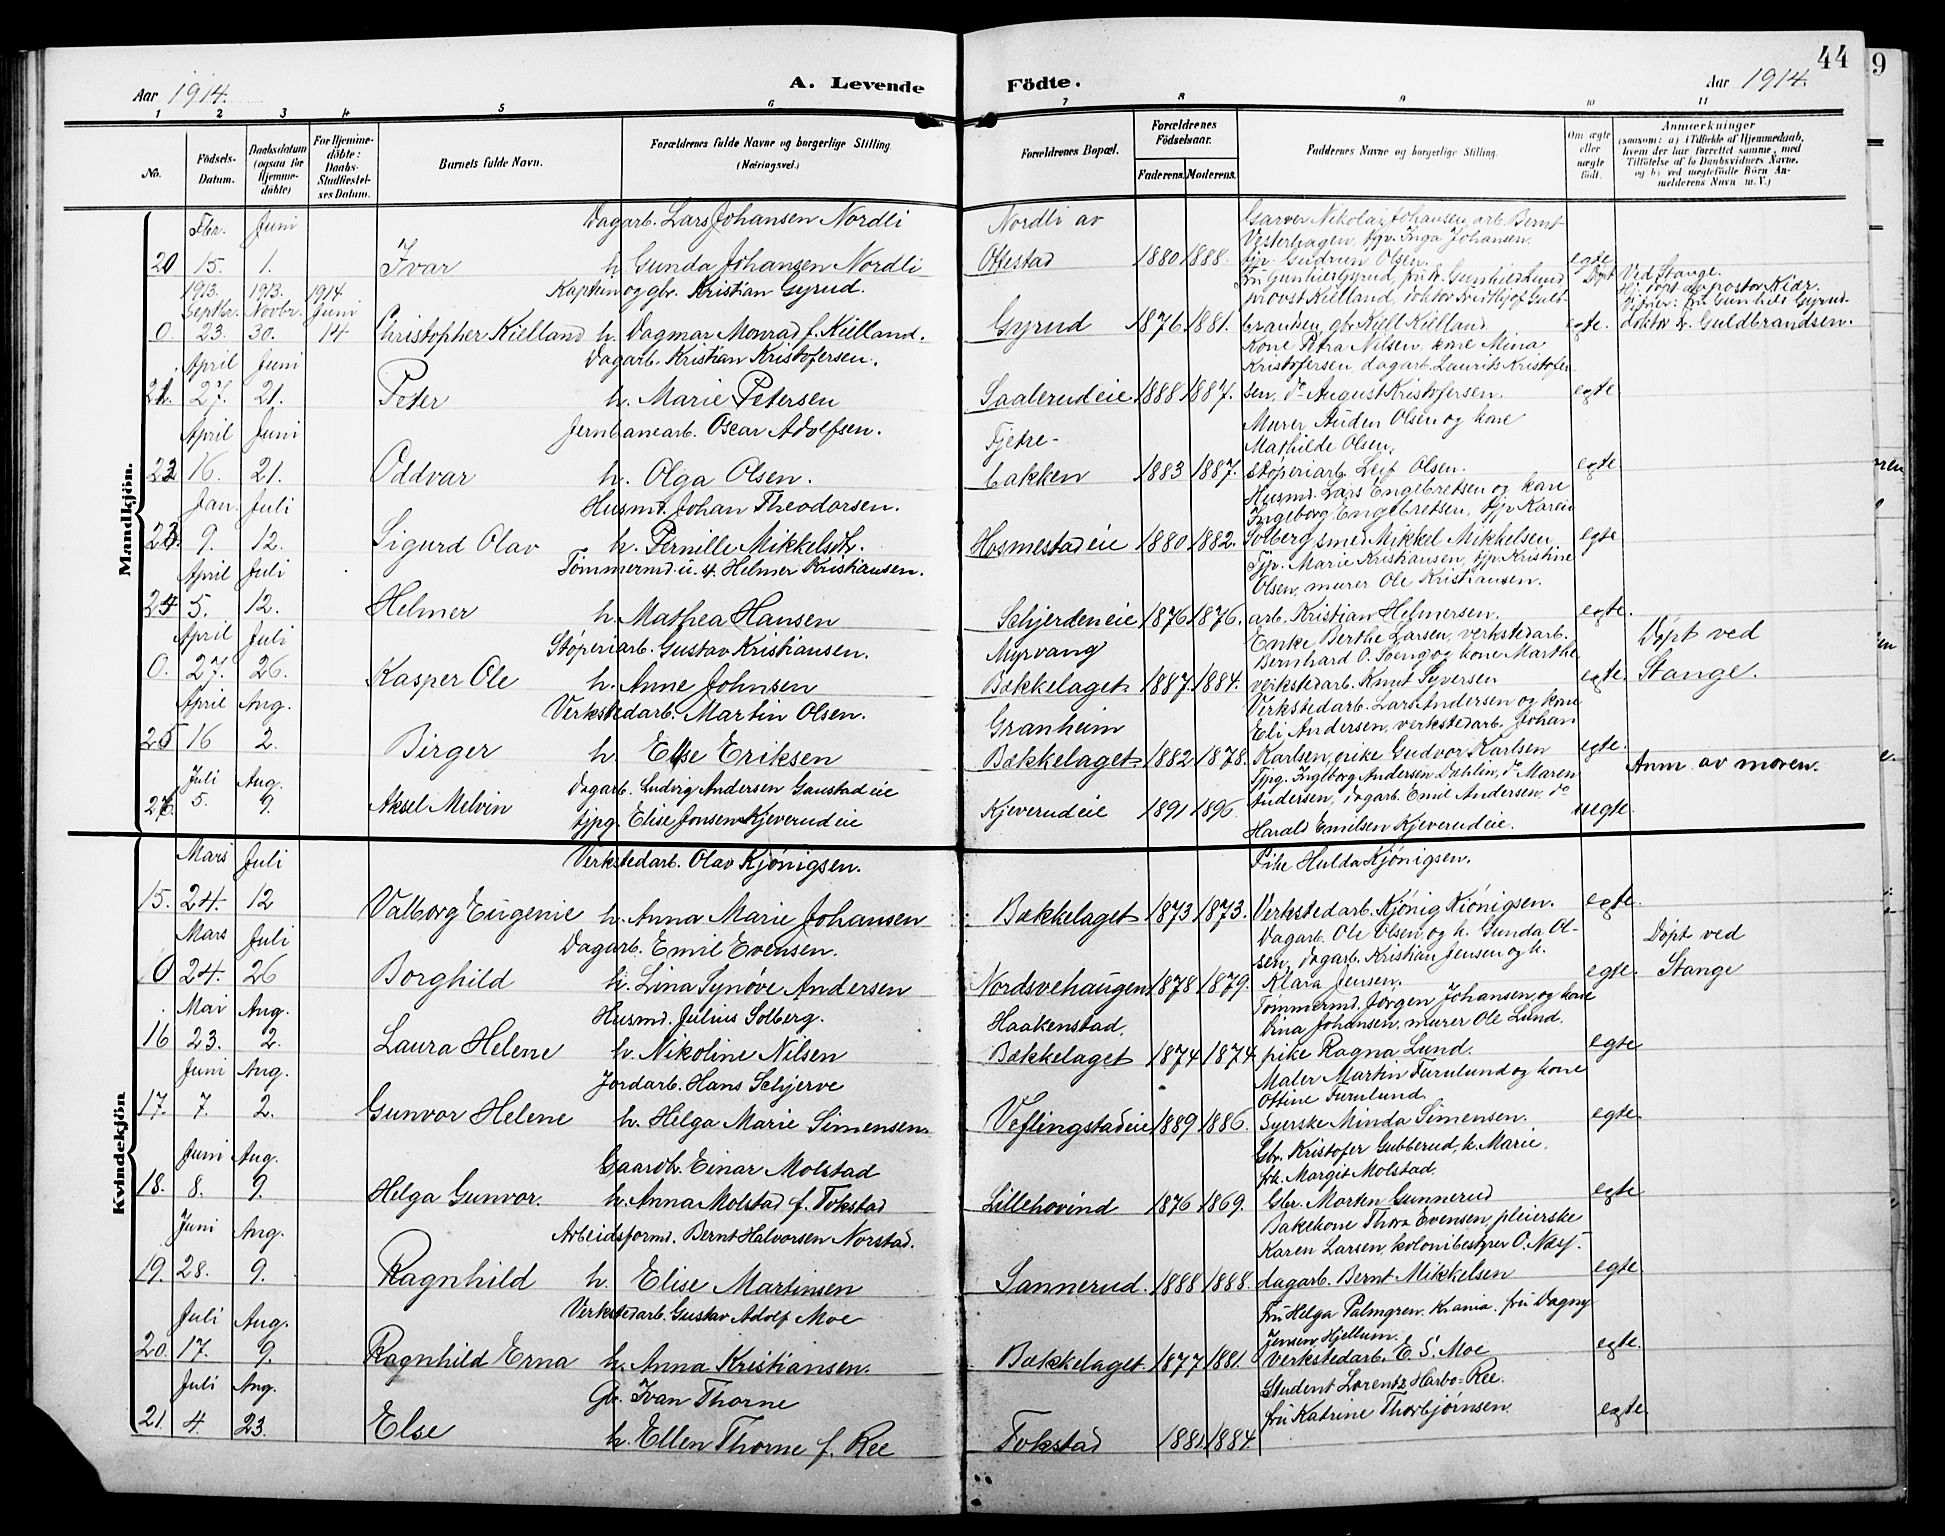 44
9
Aar 1914.
A. Levende
Födte.
Aar 1914.
1 2 3 4 5 6 7 8 9 10 11
No.
Födsels-Datum.
Daabsdatum (ogsaa for Hjemmedöbte)
For Hjemmedöbte: Daabs-Stadfæstelses Datum.
Barnets fulde Navn.
Forældrenes fulde Navne og borgerlige Stilling
(Næringsvei.)
Forældrenes Bopæl.
Forældrenes Födselsaar.
Faderens. Moderens.
Faddernes Navne og borgerlige Stilling.
Om ægte eller uægte födt.
Anmærkninger
(saasom: a) i Tilfælde af Hjemmedaab,
hvem der har forrettet samme, med
Tilföielse af to Daabsvidners Navne,
og b) ved uægtefödte Börn Anmelderens Navn m. V.)
Mandkjön.
Febr. Juni
Dagarb. Lars Johansen Nordli
Nordli av
Garver Nikolai Johansen, arb. Bernt
Vesterhagen, tjp. Inga Johansen
20 15. 1. Ivar h. Gunda Johansen Nordli Ottestad 1880 1888. tjp. Gudrun Olsen. egte
1913. 1913. 1914
Septbr. Novbr. Juni
Kaptein og gbr. Kristian Gyrud.
Fru Gunhild Gyrud, frk. Gunhild Lund
provst Kielland, doktor Fridthjof Guld-
Døpt Ved Stange.
Hj. døpt av pastor Kiær.
Vitner: fru Gunhild Gyrud
0. 23. 30. 14 Christopher Kielland h. Dagmar Monrad f. Kielland. Gyrud 1876 1881. brandsen, gbr. Kiell Kielland egte. doktor Fr. Guldbrandsen.
April Juni
Dagarb. Kristian Kristofersen.
Kone Petra Nilsen, kone Mina
Kristofersen, dagarb. Laurits Kristofer
21. 27. 21. Peter h. Marie Petersen Saalerudeie 1888 1887. sen, do August Kristofersen. egte
April Juni
Jernbanearb. Oscar Adolfsen.
Tjetre-
Murer Auden Olsen og kone
Mathilde Olsen,
22 16. 21. Oddvar h. Olga Olsen. bakken 1883 1887. støperiarb. Leif Olsen. egte
Jan. Juli
Husmd. Johan Theodorsen.
Husmd. Lars Engebretsen og kone
Ingeborg Engebretsen, tjp Karen
23. 9. 12. Sigurd Olav h. Pernille Mikkelsdtr. Hosmestadeie 1880 1882. Solberg, smed Mikkel Mikkelsen egte
April Juli
Tømmermd. u. 4. Helmer Kristiansen.
Tjp. Marie Kristiansen, tjp. Kristine
Olsen, murer Ole Kristiansen.
24 5. 12. Helmer h. Mathea Hansen Schjerdeneie 1876 1876. arb. Kristian Helmersen. egte.
April Juli
Støperiarb. Gustav Kristiansen.
Myrvang
Enke Berthe Larsen, verkstedarb.
Bernhard O. Roeng og kone Marthe
Døpt ved
0. 27. 26. Kasper Ole h. Anne Johnsen Bækkelaget 1887 1884. verkstedarb. Knut Syversen egte. Stange.
April Aug.
Verkstedarb. Martin Olsen.
Granheim
Verkstedarb. Lars Andersen og kone
Eli Andersen, verkstedarb. Johan
25 16 2. Birger h. Else Eriksen Bækkelaget 1882 1878. Karlsen, pike Gudvor Karlsen egte.
Juli Aug.
Dagarb. Ludvig Andersen Gaustadeie
Tjpg. Ingeborg Andersen Dahlin, do Maren
Anm. av moren.
26. 5. 9. Aksel Melvin tjpg. Elise Jonsen Kjeverudeie Kjeverudeie 1891 1896 Andersen, dagarb. Emil Andersen, do uegte.
Harald Emilsen Kjeverudeie.
Kvindekjön
Mars Juli
Verkstedarb. Olav Kjönigsen.
Pike Hulda Kjönigsen.
15. 24. 12 Valborg Eugenie h. Anna Marie Johansen Bækkelaget 1873 1873. Verkstedarb. Kjönig Kjönigsen. egte.
Mars Juli
Dagarb. Emil Evensen.
Dagarb. Ole Olsen og h. Gunda Ol-
sen, dagarb. Kristian Jensen og h.
Døpt ved
0 24. 26 Borghild h. Lina Synøve Andersen Nordsvehaugen 1878 1879. Klara Jensen. egte. Stange
Mai Aug.
Husmd. Julius Solberg.
Haakenstad.
Tømmermd. Jörgen Johansen og kone
Dina Johansen, murer Ole Lund.
16 23. 2. Laura Helene h. Nikoline Nilsen Bækkelaget 1874 1874 pike Ragna Lund. egte
Juni Aug.
Jordarb. Hans Schjerve
Maler Martin Furulund og kone
Ottine Furulund.
17. 7. 2. Gunvor Helene h. Helga Marie Simensen. Veflingstadeie 1889 1886. Syerske Minda Simensen. egte.
Juni Aug.
Gaardbr. Einar Molstad
Gbr. Kristofer Gubberud, h. Marie.
frk. Margit Molstad.
18. 8. 9. Helga Gunvor. h. Anna Molstad f. Tokstad Lillehovind 1876 1869. Gbr. Morten Gunnerud egte
Juni Aug.
Arbeidsformd. Bernt Halvorsen Norstad.
Bakekone Thora Evensen, pleierske
Karen Larsen, kolonibestyrer O. Næsf.
19. 28. 9. Ragnhild h. Elise Martinsen Sannerud. 1888 1888. dagarb. Bernt Mikkelsen egte
Juli Aug.
Verkstedarb. Gustav Adolf Moe
Fru Helga Palmgren. Krania. fru Dagny
Jensen Hjellum.
20. 17. 9. Ragnhild Erna h. Anna Kristiansen. Bækkelaget. 1877 1881. Verkstedarb. E. S. Moe egte.
Juli Aug.
Gbr. Ivan Thorne
Student Lorentz Harbo-Ree.
21 4. 23. Else h. Ellen Thorne f. Ree Tokstad 1881 1884. fru Katrine Thorbjørnsen. egte.